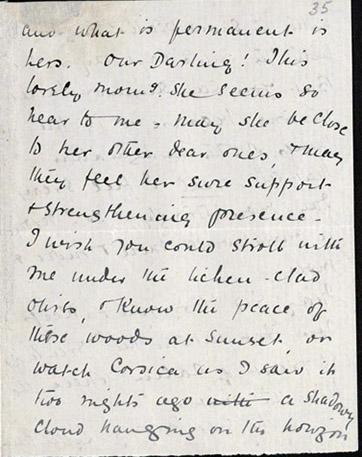 35
and what is permanent is
hers. Our Darling! This
lovely morng. she seems so
near to me - may she be close
to her other dear ones, & may
they feel her sure support
& strengthening presence -
I wish you could stroll with
me under the lichen-clad
olives, & know the peace of
these woods at sunset, or
watch Corsica as I saw it
two nights ago with a shadowy
cloud hanging on the horizon